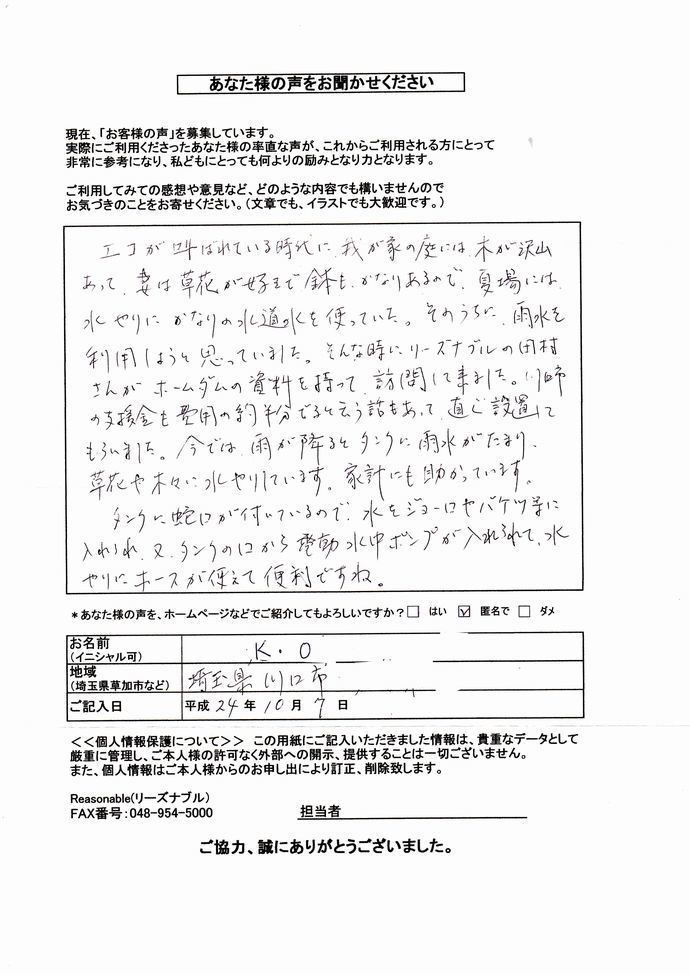 あなた様の声をお聞かせください
現在、「お客様の声」を募集しています。
実際にご利用くださったあなた様の率直な声が、これからご利用される方にとって
非常に参考になり、私どもにとっても何よりの励みとなり力となります。
ご利用してみての感想や意見など、どのような内容でも構いませんので
お気づきのことをお寄せください。（文章でも、イラストでも大歓迎です。）
エコが叫ばれている時代に、我が家の庭には、木が沢山
あって、妻は草花が好きで鉢も、かなりあるので、夏場には、
水やりに かなりの水道水を使っていた。そのうちに、雨水を
利用しようと思っていました。そんな時にリーズナブルの田村
さんがホームダムの資料を持って、訪問して来ました。川口市
の支援金も費用の約半分でると云う話もあって、直ぐ設置して
もらいました。今では、雨が降るとタンクに雨水がたまり、
草花や木々に水やりしています。家計にも助かっています。
タンクに蛇口が付いているので、水をジョーロやバケツ等に
入れられ、又、タンクの口から電動水中ポンプが入れられて、水
やりにホースが使えて便利ですね。
*あなた様の声を、ホームページなどでご紹介してもよろしいですか？□ はい ☑ 匿名で □ ダメ
お名前
（イニシャル可） K・O
地域
（埼玉県草加市など） 埼玉県 川口市
ご記入日 平成 24 年 10 月 7 日
<<個人情報保護について>> この用紙にご記入いただきました情報は、貴重なデータとして
厳重に管理し、ご本人様の許可なく外部への開示、提供することは一切ございません。
また、個人情報はご本人様からのお申し出により訂正、削除致します。
Reasonable(リーズナブル)
FAX番号：048-954-5000 担当者
ご協力、誠にありがとうございました。